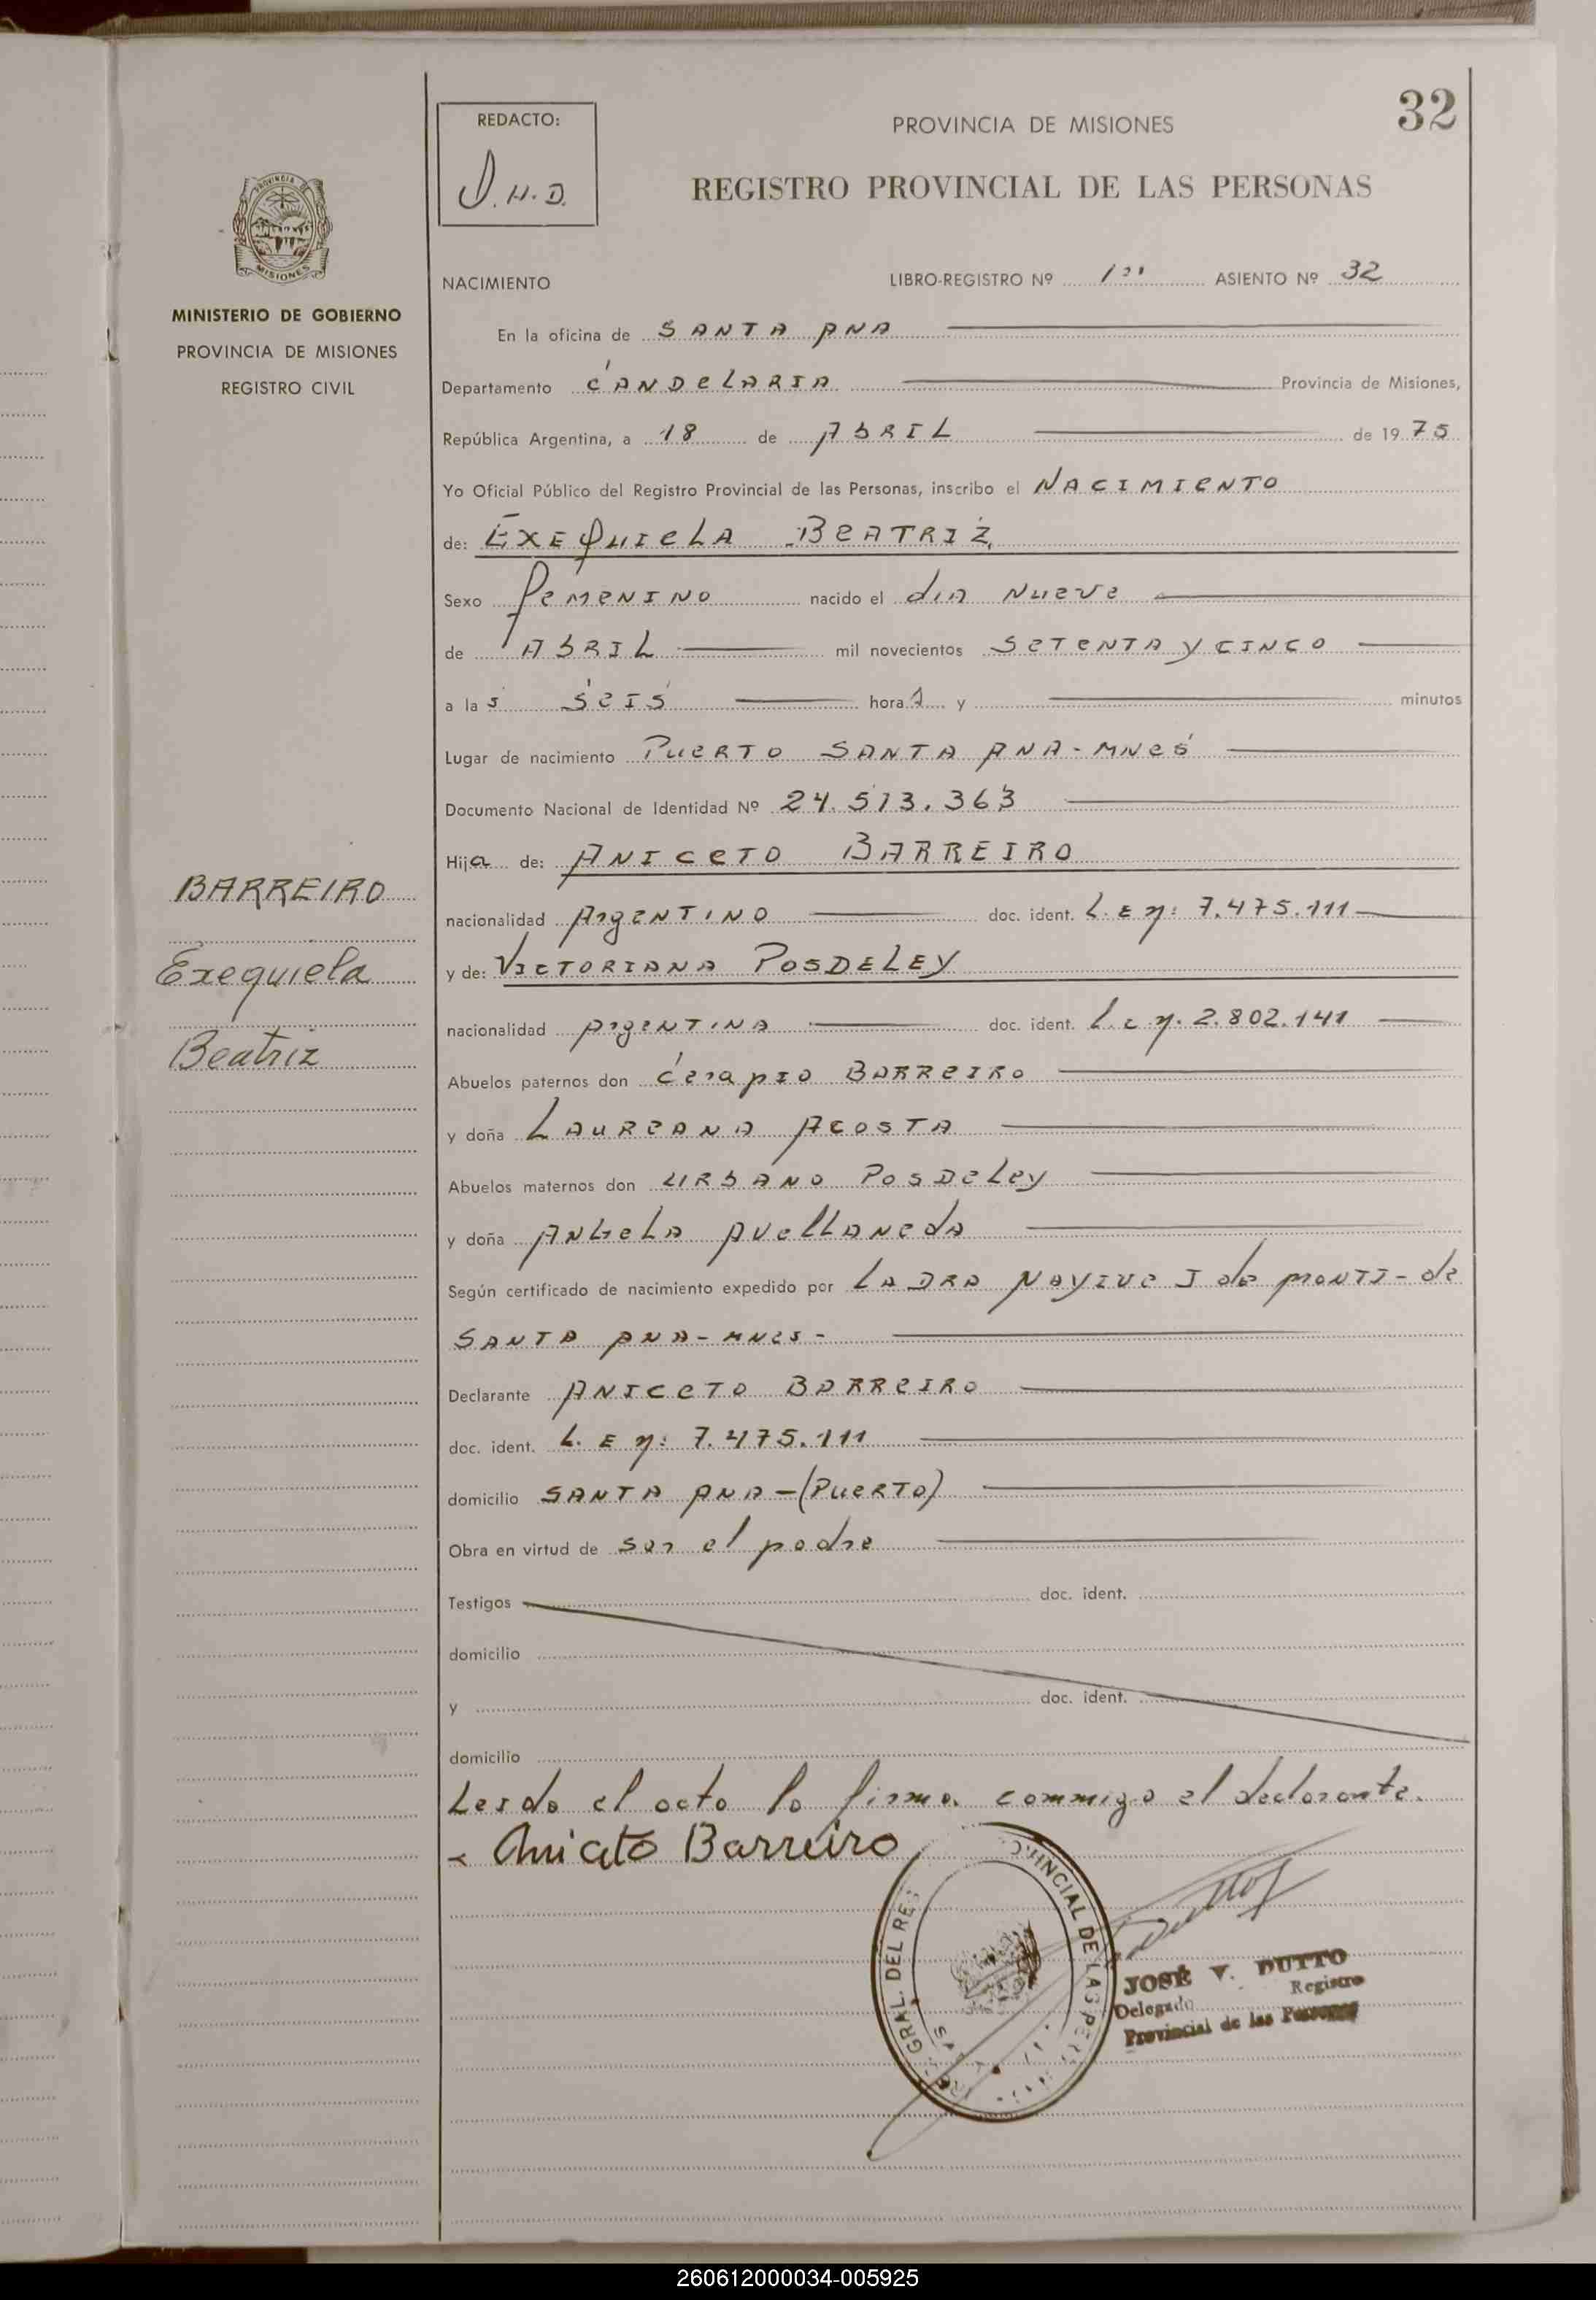 32
REDACTO:
J.H.D.
PROVINCIA DE MISIONES
REGISTRO PROVINCIAL DE LAS PERSONAS
PROVINCIA DE
MISIONES
MINISTERIO DE GOBIERNO
PROVINCIA DE MISIONES
REGISTRO CIVIL
NACIMIENTO LIBRO-REGISTRO Nº 1º ASIENTO Nº 32
En la oficina de SANTA ANA
Departamento CANDeLARIA Provincia de Misiones,
República Argentina, a 18 de ABRIL de 1975
Yo Oficial Público del Registro Provincial de las Personas, inscribo el NACIMIeNTO
de: EXEQUIeLA BeATRIZ
Sexo femeNINO nacido el dia Nueve
de ABRIL mil novecientos SeTeNTA y CINCO
a las SeIS horas y minutos
Lugar de nacimiento PueRTO SANTA ANA - MNeS
Documento Nacional de Identidad Nº 24.513.363
Hija de: ANICeTO BARREIRO
nacionalidad ArgeNTINO doc. ident. L. E Nº: 7.475.111
y de: VICTORIANA POSDELEY
nacionalidad ArgeNTINA doc. ident. L c Nº. 2.802.141
Abuelos paternos don CerapIO BARReIRO
y doña LAUReANA ACOSTA
Abuelos maternos don URBANO POSDeLey
y doña ANGeLA AVeLLANedA
Según certificado de nacimiento expedido por LA DRA NAYIVe J de MONTI - de
SANTA ANA - MNeS -
Declarante ANICeTO BARReIRO
doc. ident. L. E Nº: 7.475.111
domicilio SANTA ANA - (PueRTO)
Obra en virtud de ser el padre
Testigos doc. ident.
domicilio
y doc. ident.
domicilio
Leido el acta la firma commigo el declarante.
Aniceto Barreiro
BARREIRO
Exequiela
Beatriz
GRAL. DEL REG
PROVINCIAL DE LAS PER
JOSÉ V. DUTTO
Delegado Registro
Provincial de las Personas
260612000034-005925